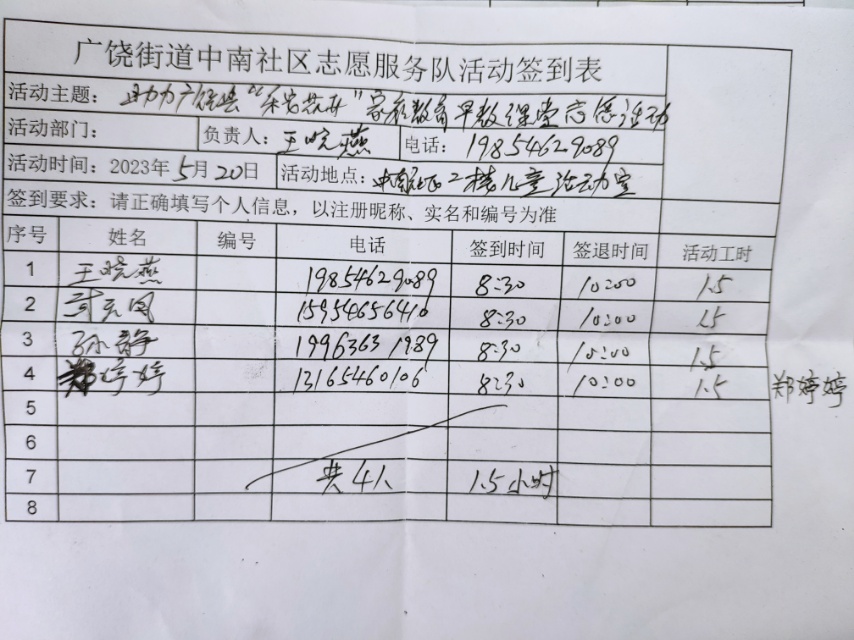 广饶街道中南社区志愿服务队活动签到表
活动主题： 助力广饶县“乐安花开”家庭教育早教课堂志愿活动
活动部门： 负责人：王晓燕 电话：19854629089
活动时间：2023年5月20日 活动地点：中南社区二楼儿童活动室
签到要求：请正确填写个人信息，以注册昵称、实名和编号为准
序号 姓名 编号 电话 签到时间 签退时间 活动工时
1 王晓燕 19854629089 8:30 10:00 1.5
2 15954656410 8:30 10:00 1.5
3 孙静 19963631989 8:30 10:00 1.5
4 郑婷婷 13165460106 8:30 10:00 1.5 郑婷婷
5
6
7 共4人 1.5小时
8